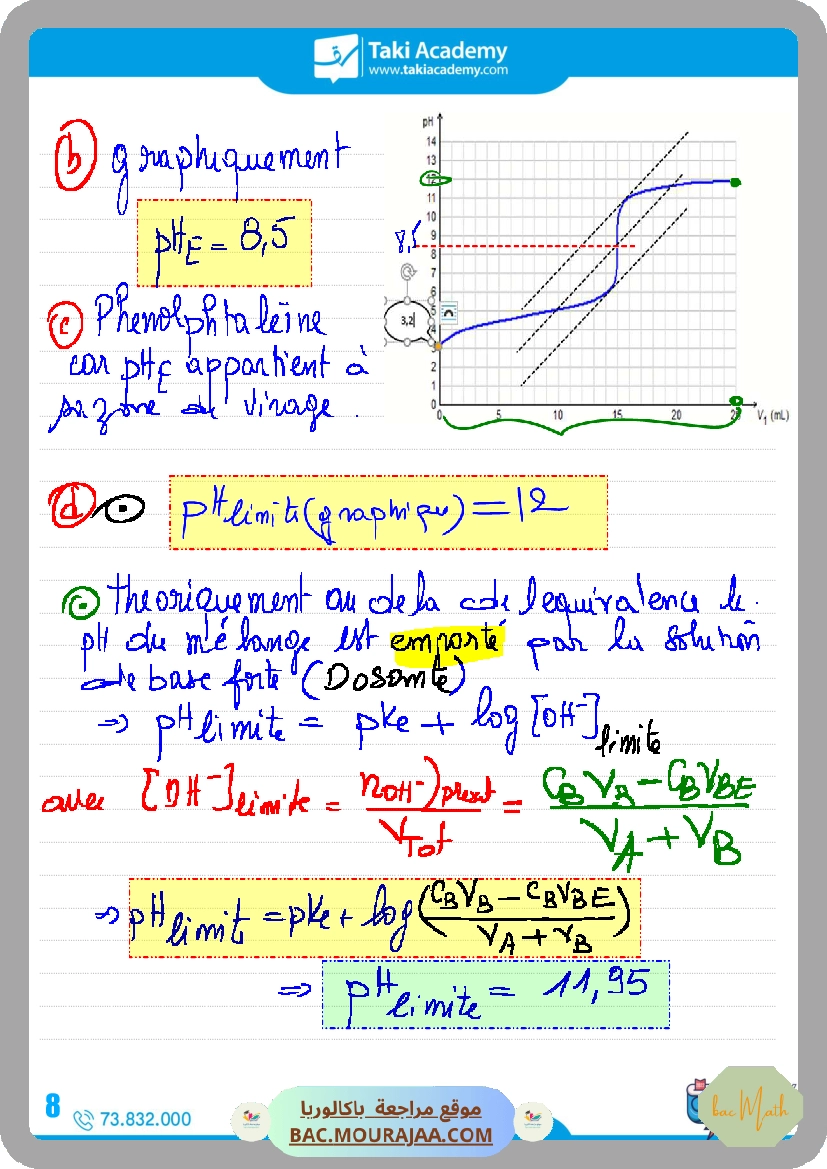 Taki Academy
www.takiacademy.com
b graphiquement
pH_E = 8,5
c Phenolphtaleïne
car pH_E appartient à
sa zone de virage.
pH
14
13
12
11
10
9
8,5
8
7
6
5
4
3,2
3
2
1
0
0 5 10 15 20 25 V₁ (mL)
d pH limite (graphique) = 12
Theoriquement au dela de l'equivalence le
pH du mélange est emporté par la solution
de base forte (Dosante)
⇒ pH limite = pKe + log [OH⁻] limite
avec [OH⁻] limite = n(OH⁻) / V_Tot = (C_B V_B − C_B V_BE) / (V_A + V_B)
⇒ pH limit = pKe + log ((C_B V_B − C_B V_BE) / (V_A + V_B))
⇒ pH limite = 11,95
8
73.832.000
موقع مراجعة باكالوريا
BAC.MOURAJAA.COM
bac Math